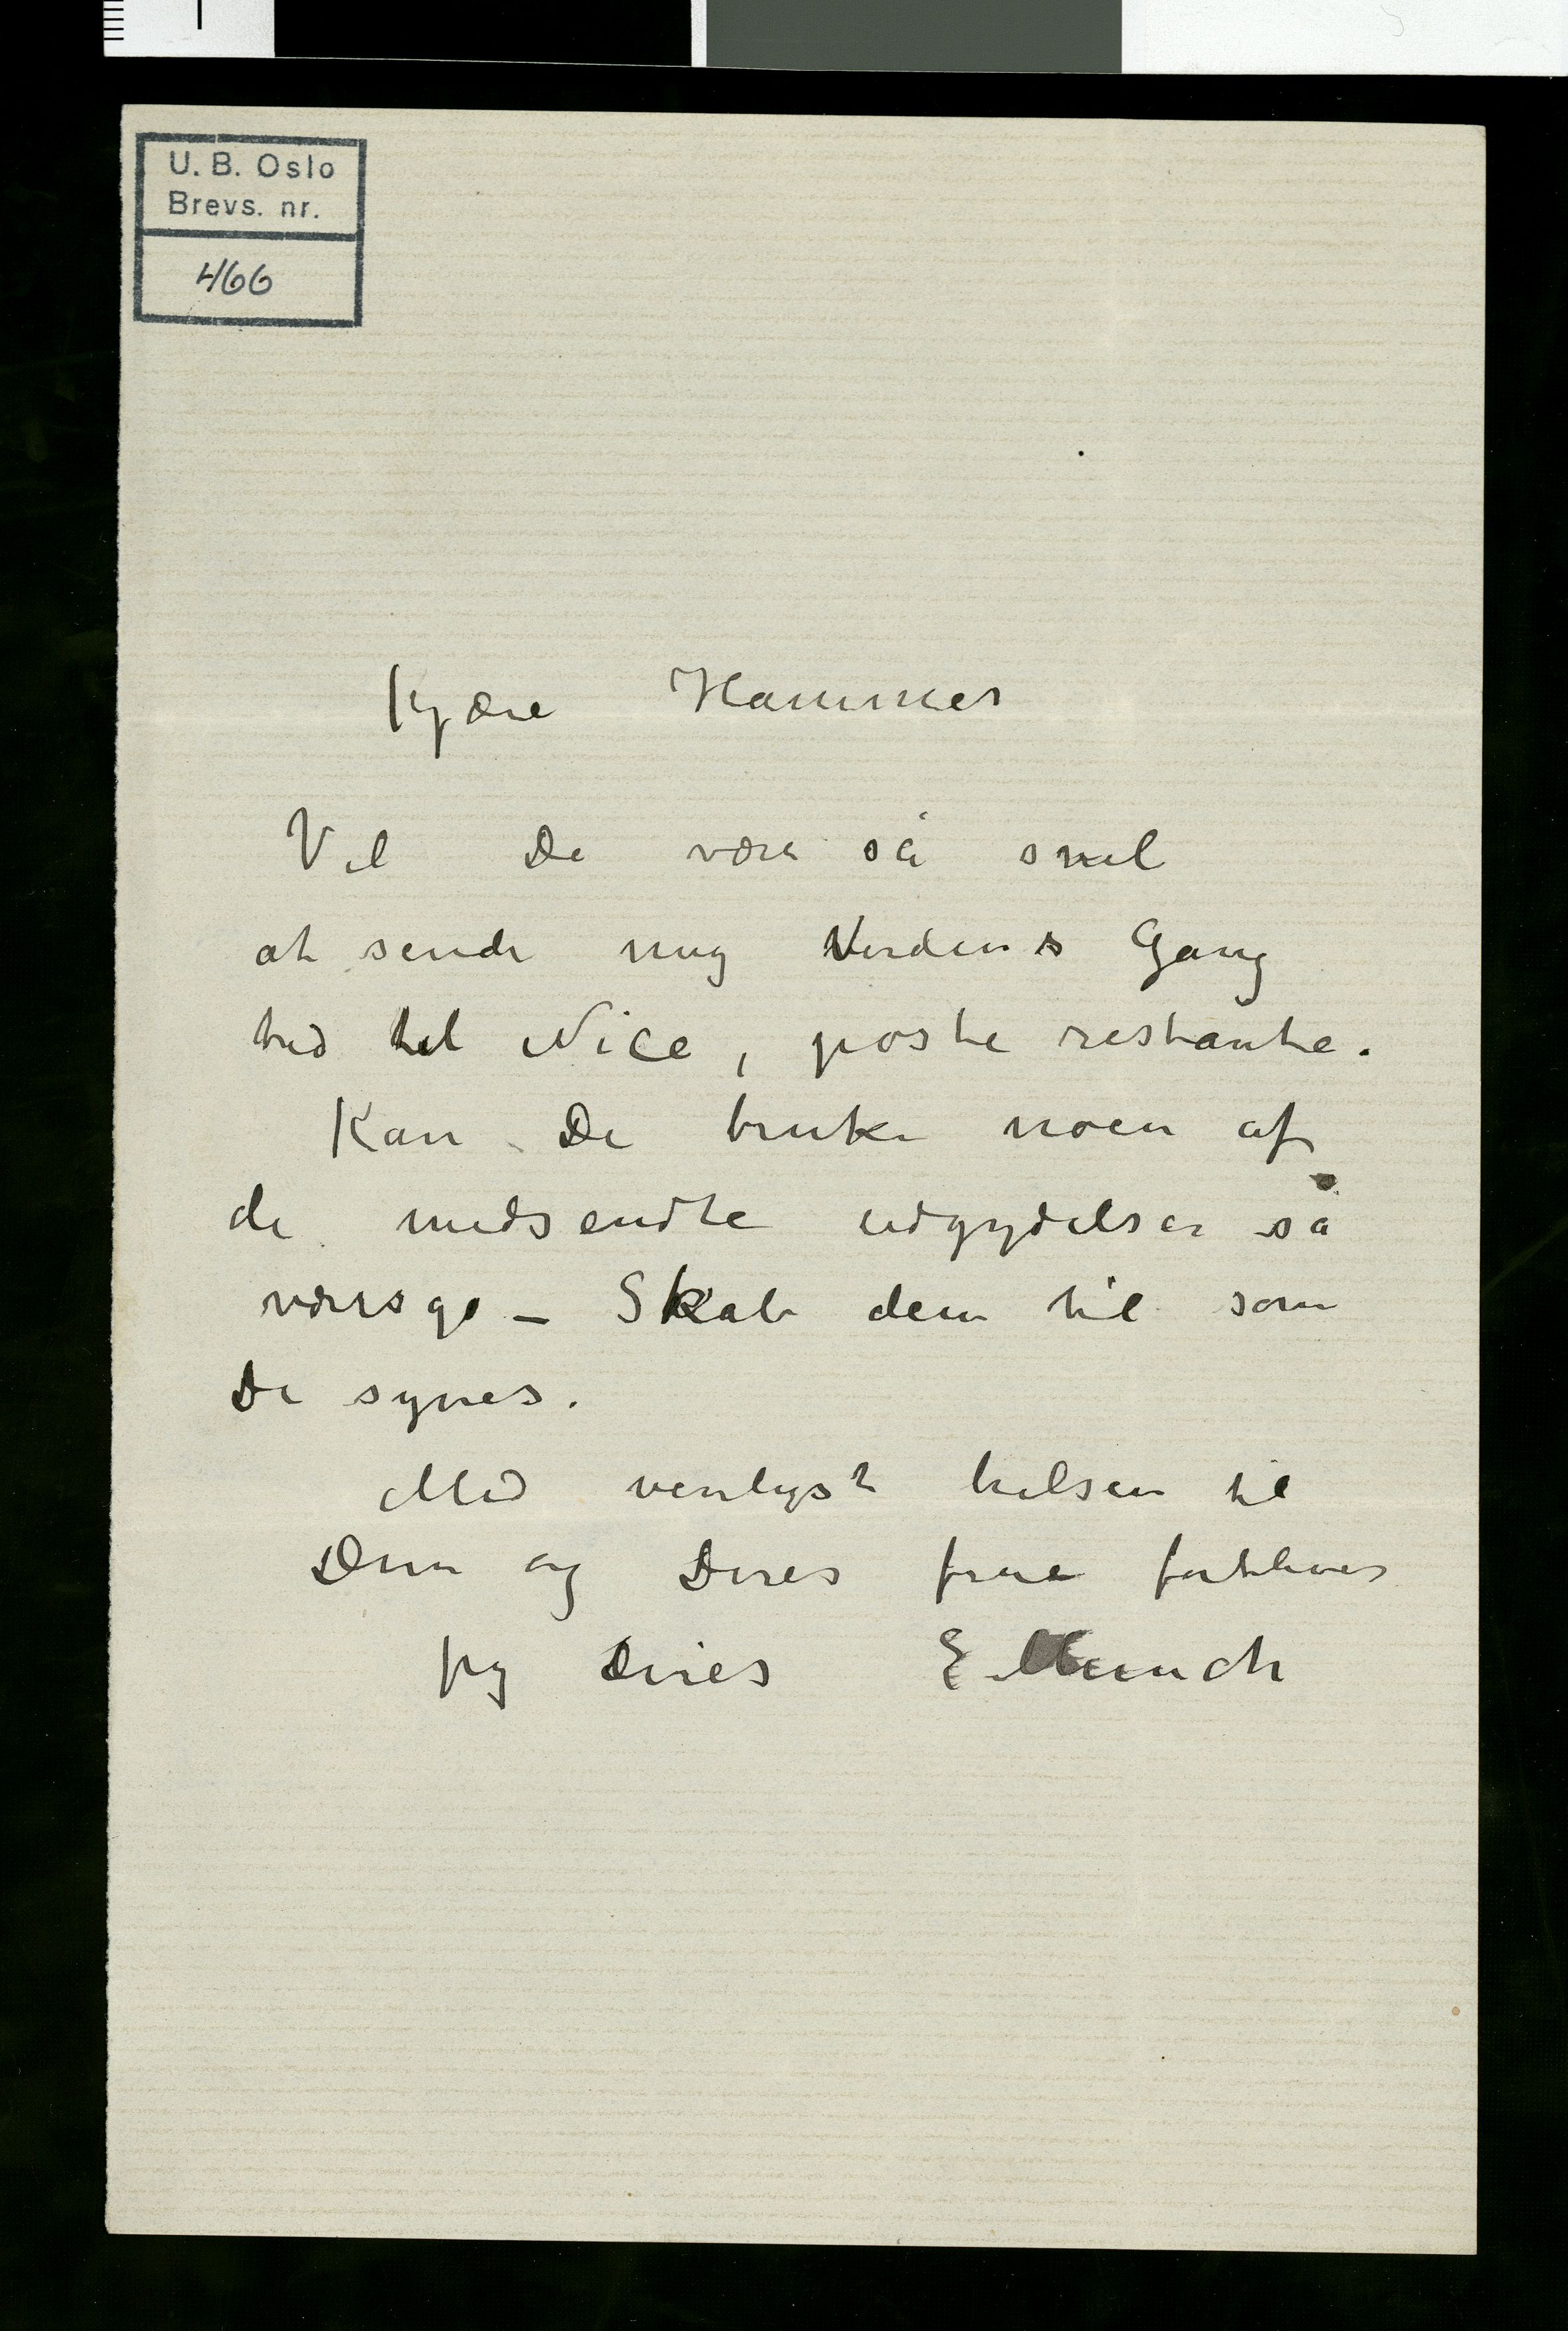 U. B. Oslo
Brevs. nr.
466
Kjære Hammer
Vil De være så snil
at sende mig Verdens Gang
hid til Nice, poste restante.
Kan De bruke noen af
de medsendte udgydelser så
værsgo – Skab dem til som
De synes.
Med venligst hilsen til
Dem og Deres frue forbliver
jeg Deres E Munch